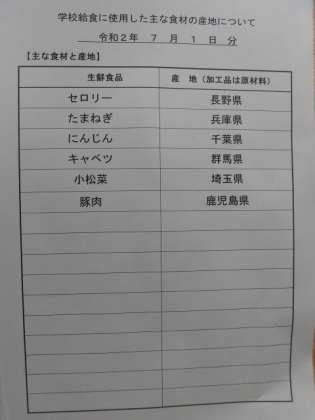 学校給食に使用した主な食材の産地について
令和２年 ７ 月 １ 日 分
【主な食材と産地】
生鮮食品 産 地（加工品は原材料）
セロリー 長野県
たまねぎ 兵庫県
にんじん 千葉県
キャベツ 群馬県
小松菜 埼玉県
豚肉 鹿児島県